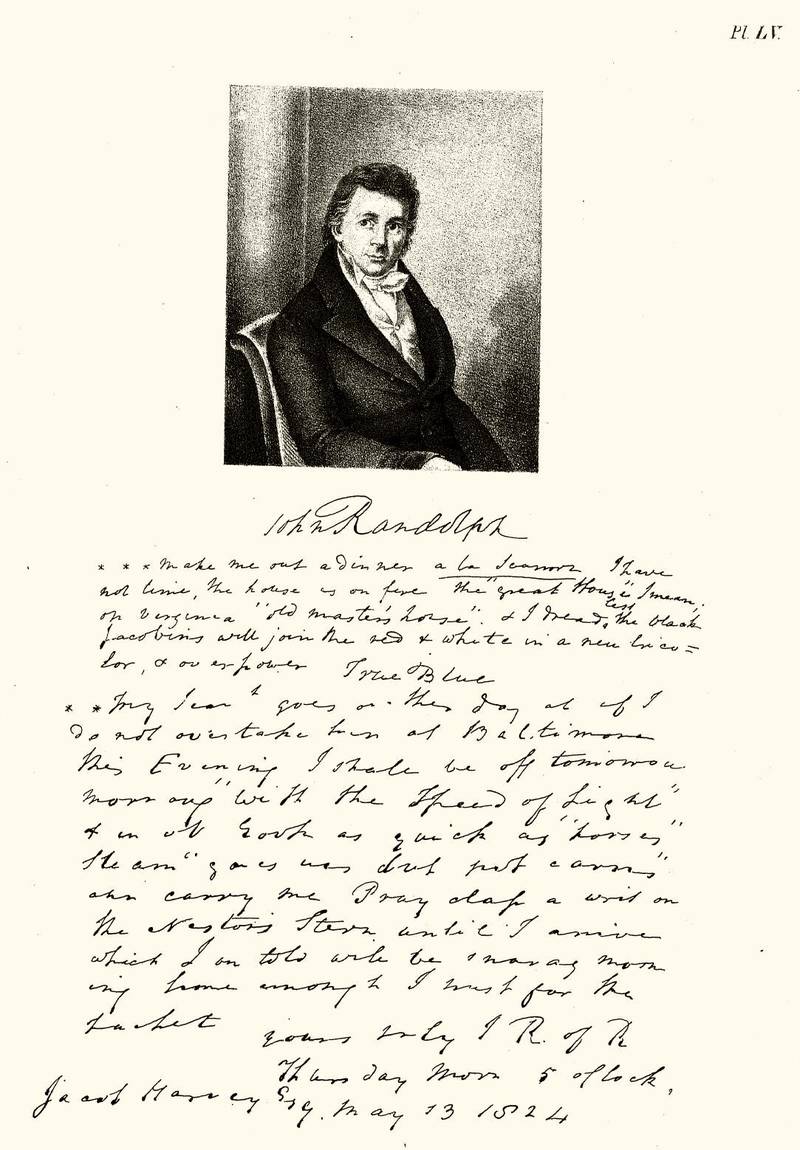 Pl. LV.
John Randolph
* * * make me out a dinner a la I have
not time, the house is on fire the "great House" I mean,
on Virginia "old master's house". & I dread, lest the black
Jacobins will join the red & white in a new trico=
lor, & overpower True Blue
* * My goes on this day at if I
do not overtake him at Baltimore
this Evening I shall be off tomorrow
morning "with the Speed of Light"
& in as quick as "horses"
Steam" pot
can carry me Pray clap a writ on
the Nestor's Stern until I arrive
which I am told will be morn
ing enough I must for the
packet yours truly J R. of R
Thursday Morn 5 oClock,
Jacob Harvey Esq. May 13 1824